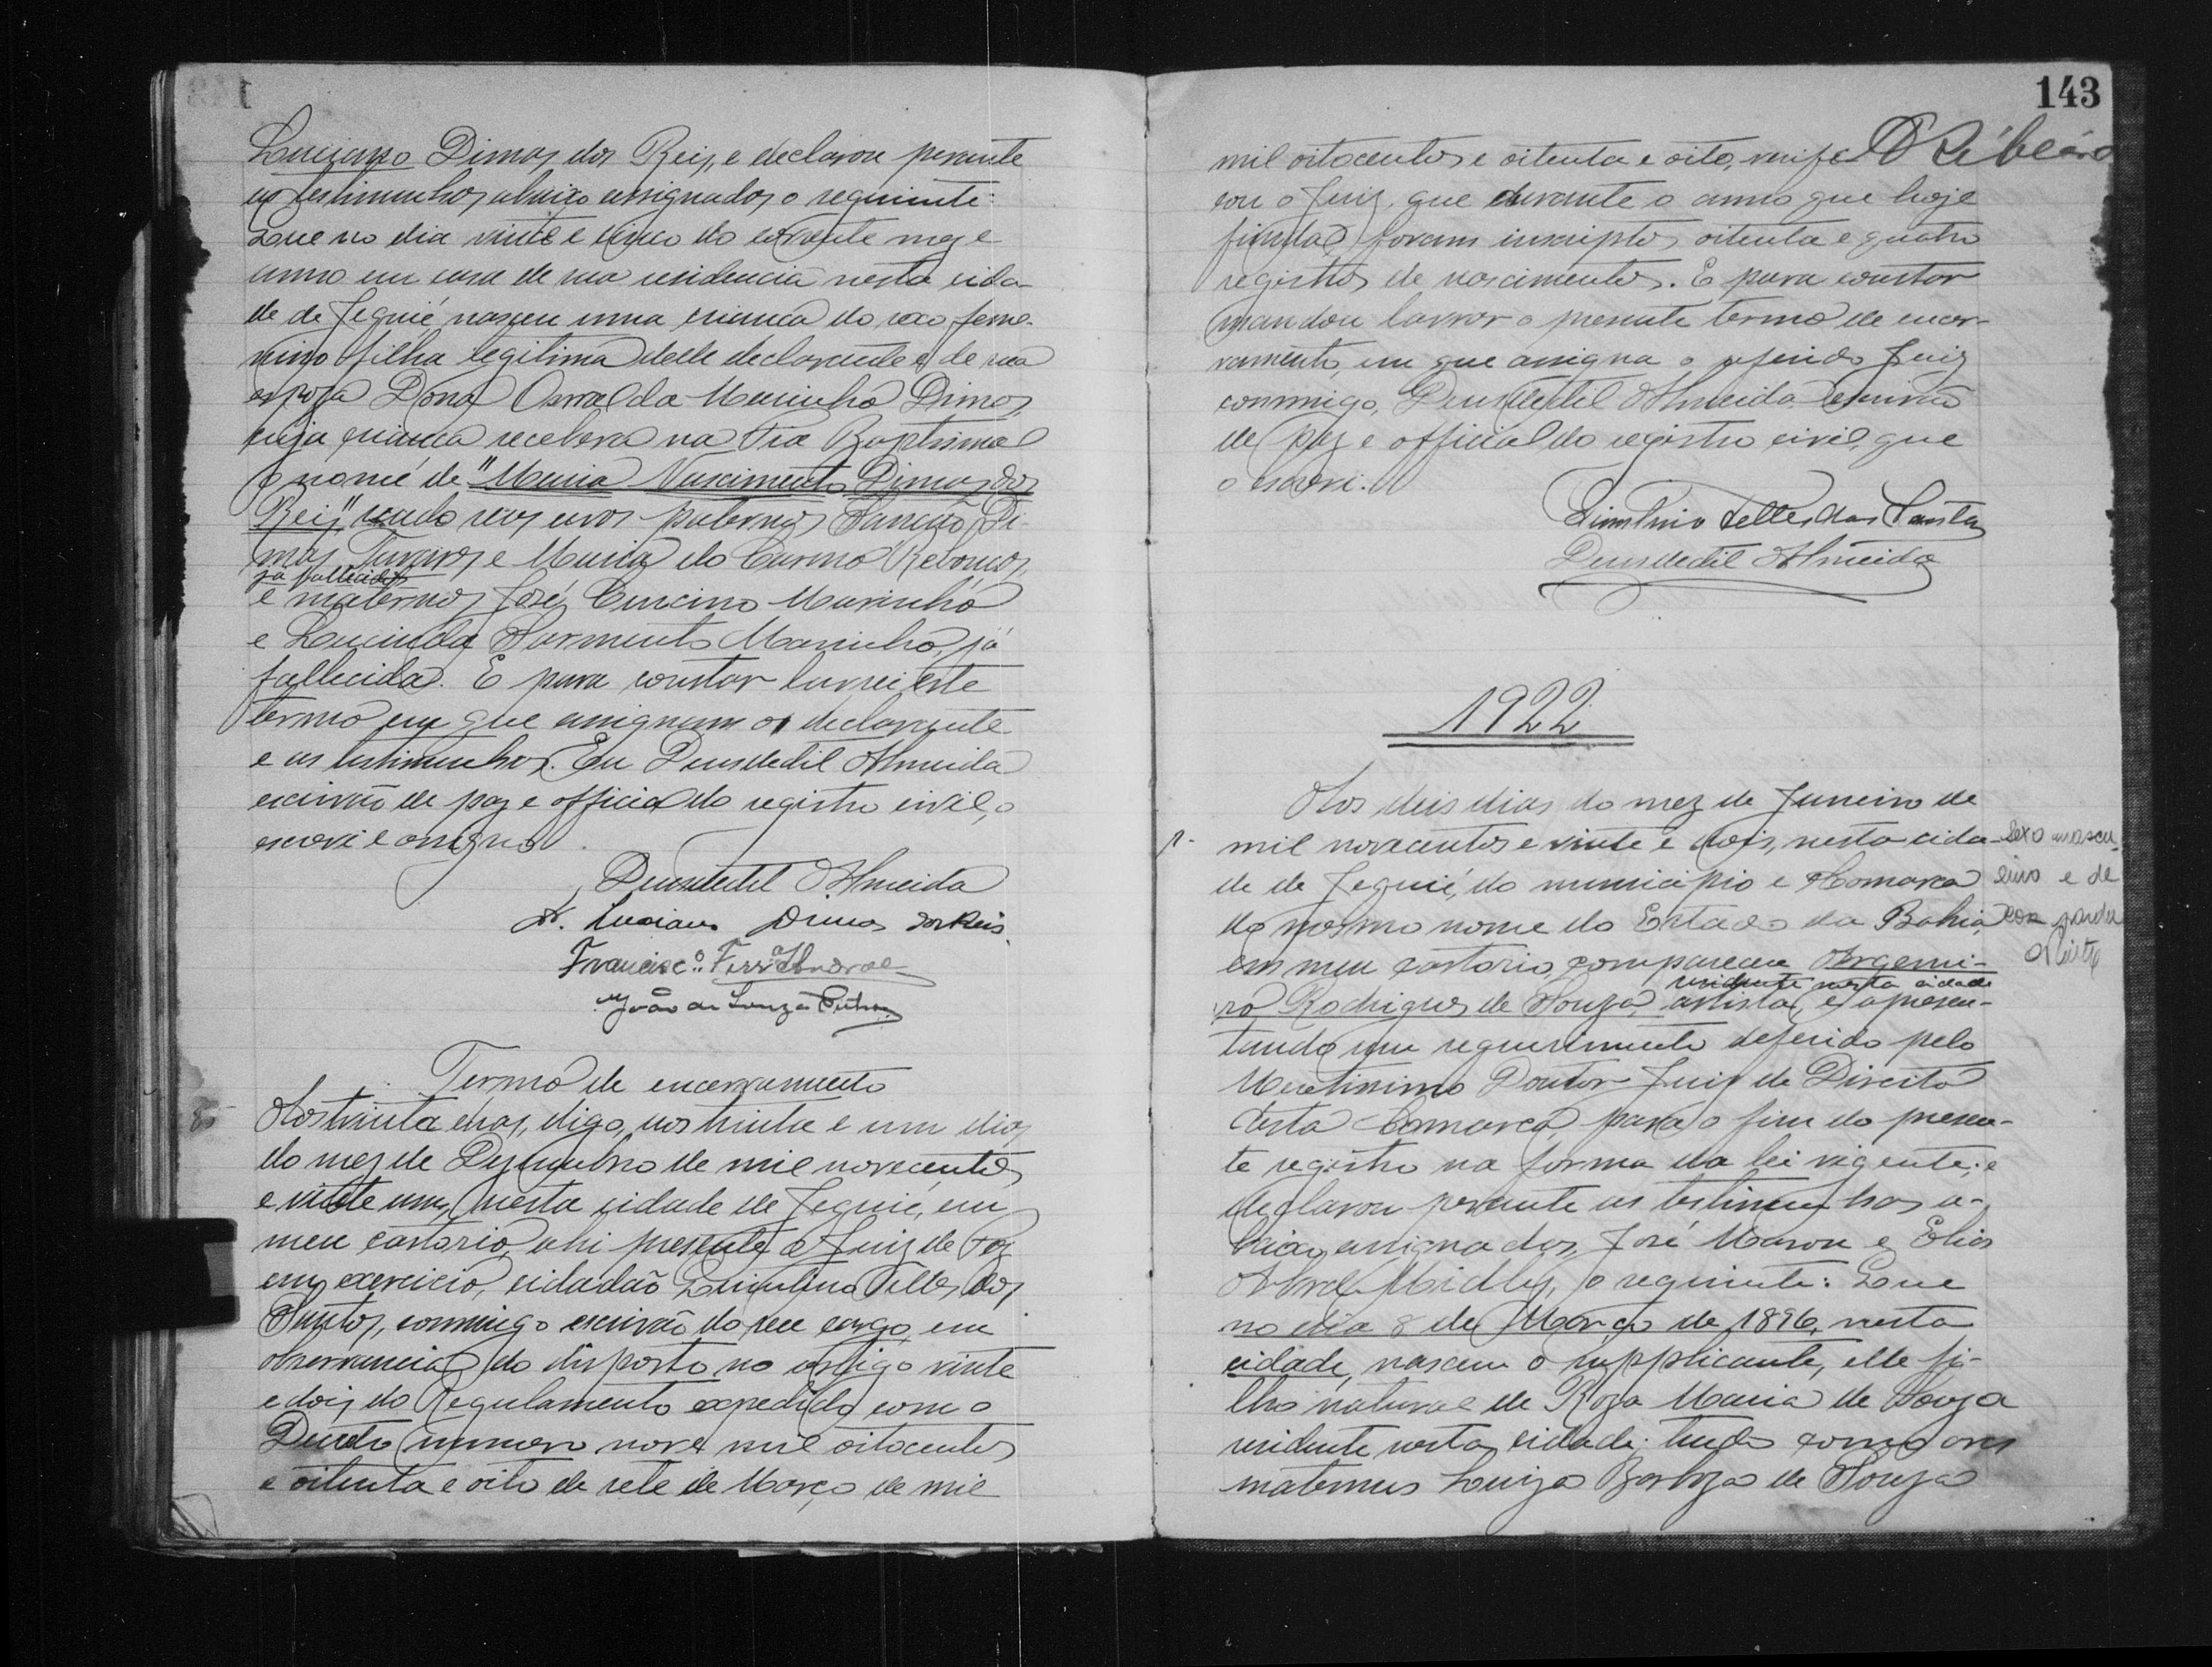 Luciano Dimas dos Reis, e declarou perante
as testimunhas abaixo assignadas, o seguinte:
Que no dia vinte e cinco do corrente mez e
anno em casa de sua residencia nesta cida-
de de Jequié nasceu uma criança do sexo feme-
nino filha legitima delle declarante e de sua
espoza Dona Oswalda Marinho Dimas,
cuja criança receberá na Pia Baptismal
o nome de "Maria Nascimento Dimas dos
Reis" sendo seus avos paternos Di-
mas Tavares e Maria do Carmo Rebouças,
já fallecidos
e maternos José Marinho
e Lucinda Sarmento Marinho, já
fallecida. E para constar lavrei este
termo em que assignam o declarante
e as testimunhas. Eu Deusdedit Almeida
escrivão de paz e official do registro civil, o
escrevi e assigno.
Deusdedit Almeida
Luciano Dimas dos Reis
Francisco Ferrª Andrade
João de Souza
Termo de encerramento
85
Aos trinta dias, digo, aos trinta e um dias
do mez de Dezembro de mil novecentos
e vinte um, nesta cidade de Jequié, em
meu cartorio, ahi presente o Juiz de Paz
em exercicio, cidadão Telles dos
Santos, commigo escrivão do seu cargo, em
observancia do disposto no artigo vinte
e dois do Regulamento expedido com o
Decreto numero nove mil oitocentos
e oitenta e oito de sete de Março de mil
143
mil oitocentos e oitenta e oito, verifi- Ribeiro
cou o Juiz, que durante o anno que hoje
finda, foram inscriptos oitenta e quatro
registros de nascimentos. E para constar
mandou lavrar o presente termo de encer-
ramento, em que assigna o referido Juiz
commigo, Deusdedit Almeida escrivão
de paz e official do registro civil, que
o escrevi.
Telles dos Santos
Deusdedit Almeida
1922
Aos deis dias do mez de Janeiro de
1-
mil novecentos e vinte e dois, nesta cida- sexo mascu-
de de Jequié, do municipio e Comarca lino e de
do mesmo nome do Estado da Bahia, cor parda
em meu cartorio, compareceu Argemi-
residente nesta cidade
ro Rodrigues de Souza, artista, e apresen-
tando um requerimento deferido pelo
Meretissimo Doutor Juiz de Direito
desta Comarca, para o fim do presen-
te registro na forma da lei vigente; e
declarou perante as testimunhas a-
baixo assignadas, José Maron e Elias
Midlej, o seguinte: Que
no dia 8 de Março de 1896, nesta
cidade, nasceu o supplicante, elle fi-
lho natural de Roza Maria de Souza
residente nesta cidade; tendo como avos
maternos Luiza Barboza de Souza